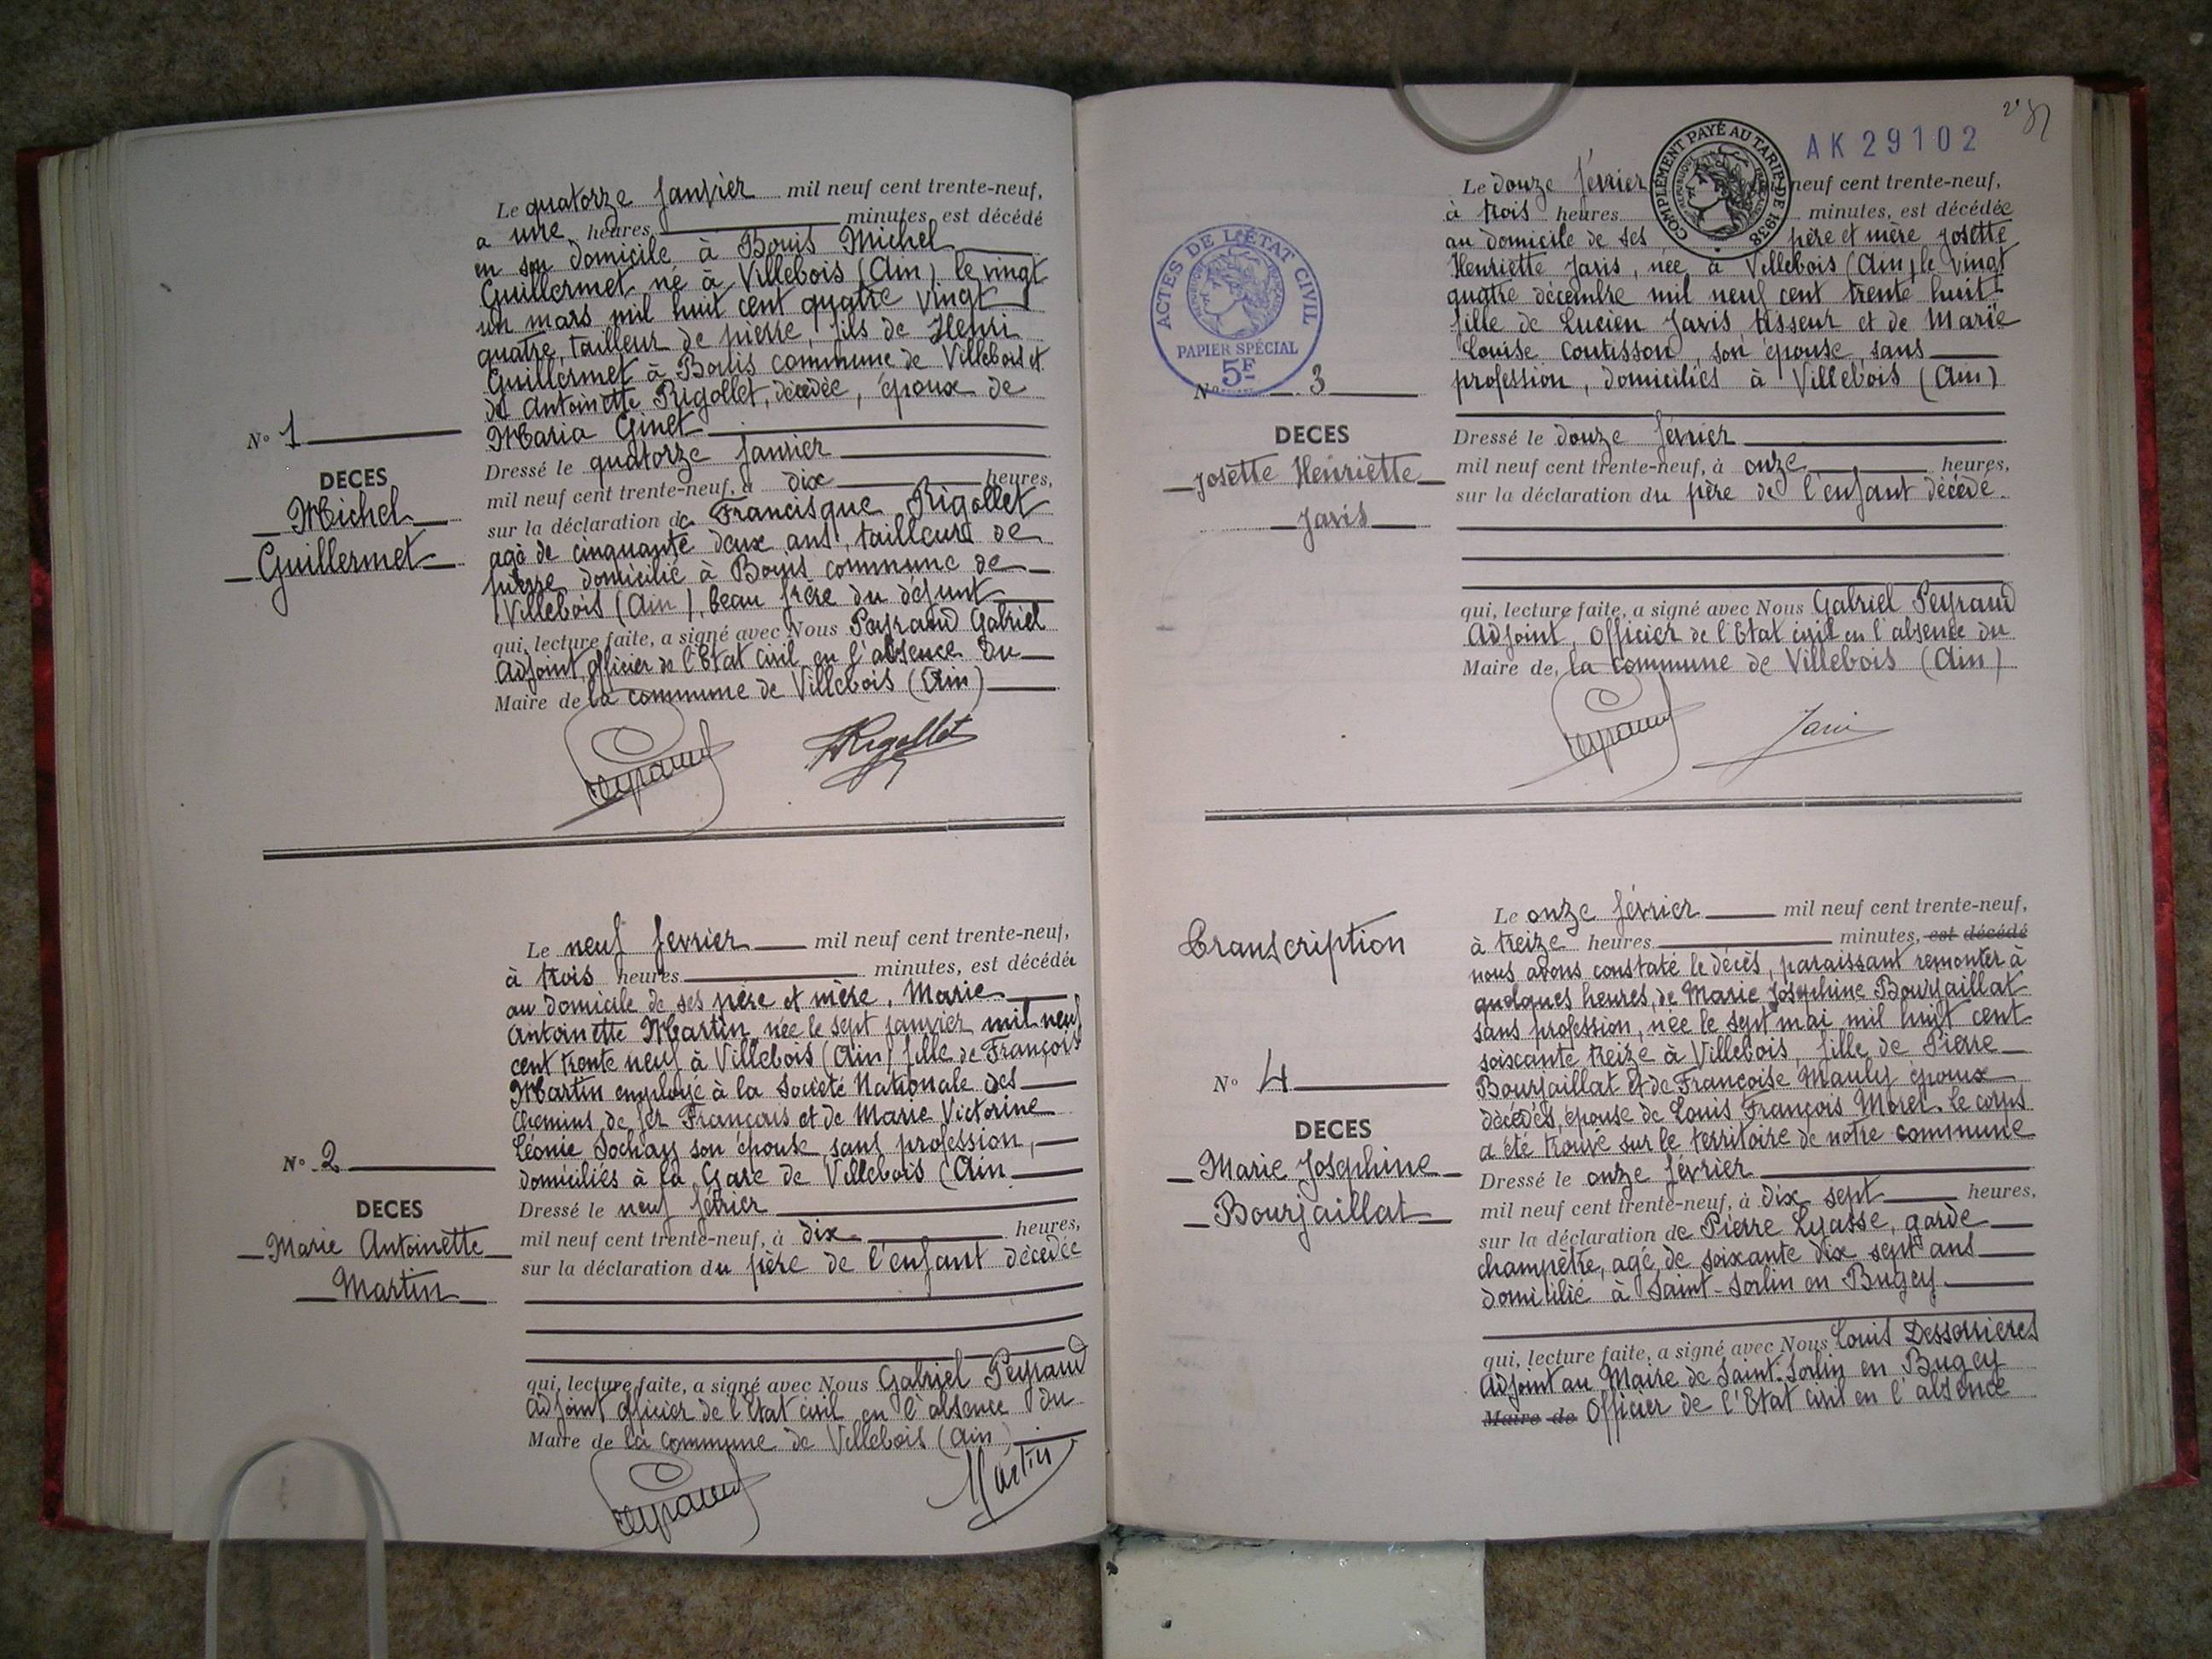 Le quatorze janvier mil neuf cent trente-neuf,
a une heures minutes, est décédé
en son domicile à Bouis Michel
Guillermet né à Villebois (Ain) le vingt
un mars mil huit cent quatre vingt
quatre, tailleur de pierre, fils de Henri
Guillermet à Bouis commune de Villebois et
de Antoinette Rigollet, décédée, époux de
Maria Ginet
Nº 1
DECES
Michel
Guillermet
Dressé le quatorze janvier
mil neuf cent trente-neuf, à dix heures,
sur la déclaration de Francisque Rigollet
agé de cinquante deux ans, tailleurs de
pierre domicilié à Bouis commune de
Villebois (Ain), beau frère du défunt
qui, lecture faite, a signé avec Nous Peyraud Gabriel
Adjoint, officier de l'Etat civil en l'absence du
Maire de la commune de Villebois (Ain)
Peyraud Rigollet
Le neuf fevrier mil neuf cent trente-neuf,
à trois heures minutes, est décédée
au domicile de ses père et mère, Marie
Antoinette Martin, née le sept janvier mil neuf
cent trente neuf à Villebois (Ain) fille de François
Martin employé à la Société Nationale des
Chemins de fer Français et de Marie Victorine
Léonie Sochay son épouse sans profession,
domiciliés à la Gare de Villebois (Ain
Nº 2
DECES
Marie Antoinette
Martin
Dressé le neuf février
mil neuf cent trente-neuf, à dix heures,
sur la déclaration du père de l'enfant décédée
qui, lecture faite, a signé avec Nous Gabriel Peyraud
Adjoint officier de l'Etat civil en l'absence du
Maire de la commune de Villebois (Ain)
Peyraud Martin
AK 29102
COMPLÉMENT PAYÉ AU TARIF DE 1938
ACTES DE L'ÉTAT CIVIL
PAPIER SPÉCIAL
5F
Le douze février neuf cent trente-neuf,
à trois heures minutes, est décédée
au domicile de ses père et mère Josette
Henriette Jaris, née à Villebois (Ain) le vingt
quatre décembre mil neuf cent trente huit
fille de Lucien Jaris tisseur et de Marie
Louise Coutisson, son épouse, sans
profession, domiciliés à Villebois (Ain)
Nº 3
DECES
Josette Henriette
Jaris
Dressé le douze février
mil neuf cent trente-neuf, à onze heures,
sur la déclaration du père de l'enfant décédé.
qui, lecture faite, a signé avec Nous Gabriel Peyraud
Adjoint, Officier de l'Etat civil en l'absence du
Maire de, la commune de Villebois (Ain)
Peyraud Jaris
Transcription
Le onze février mil neuf cent trente-neuf,
à treize heures minutes, est décédé
nous avons constaté le décès, paraissant remonter à
quelques heures, de Marie Josephine Bourjaillat
sans profession, née le sept mai mil huit cent
soixante treize à Villebois, fille de Pierre
Bourjaillat et de Françoise Mauly époux
décédés, épouse de Louis François Morel. le corps
a été trouvé sur le territoire de notre commune
Nº 4
DECES
Marie Josephine
Bourjaillat
Dressé le onze février
mil neuf cent trente-neuf, à dix sept heures,
sur la déclaration de Pierre Lyasse, garde
champêtre, agé de soixante dix sept ans
domicilié à Saint-Sorlin en Bugey
qui, lecture faite, a signé avec Nous Louis Desserrieres
Adjoint au Maire de Saint-Sorlin en Bugey
Maire de Officier de l'Etat civil en l'absence